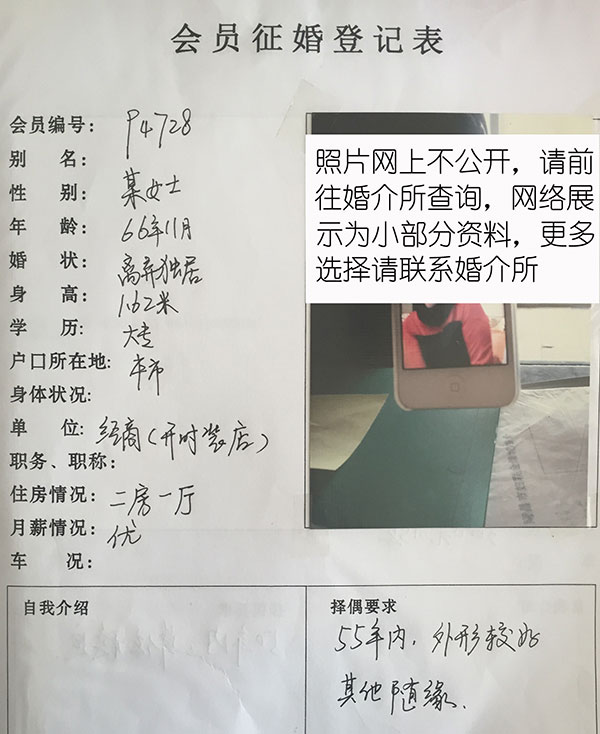 会员征婚登记表
会员编号: P4728
别 名:
性 别: 某女士
年 龄: 66年11月
婚 状: 离异独居
身 高: 1.62米
学 历: 大专
户口所在地: 本市
身体状况:
单 位: 经商(开时装店)
职务、职称:
住房情况: 二房一厅
月薪情况: 优
车 况:
照片网上不公开，请前
往婚介所查询，网络展
示为小部分资料，更多
选择请联系婚介所
自我介绍
择偶要求
55年内，外形较好
其他随缘.